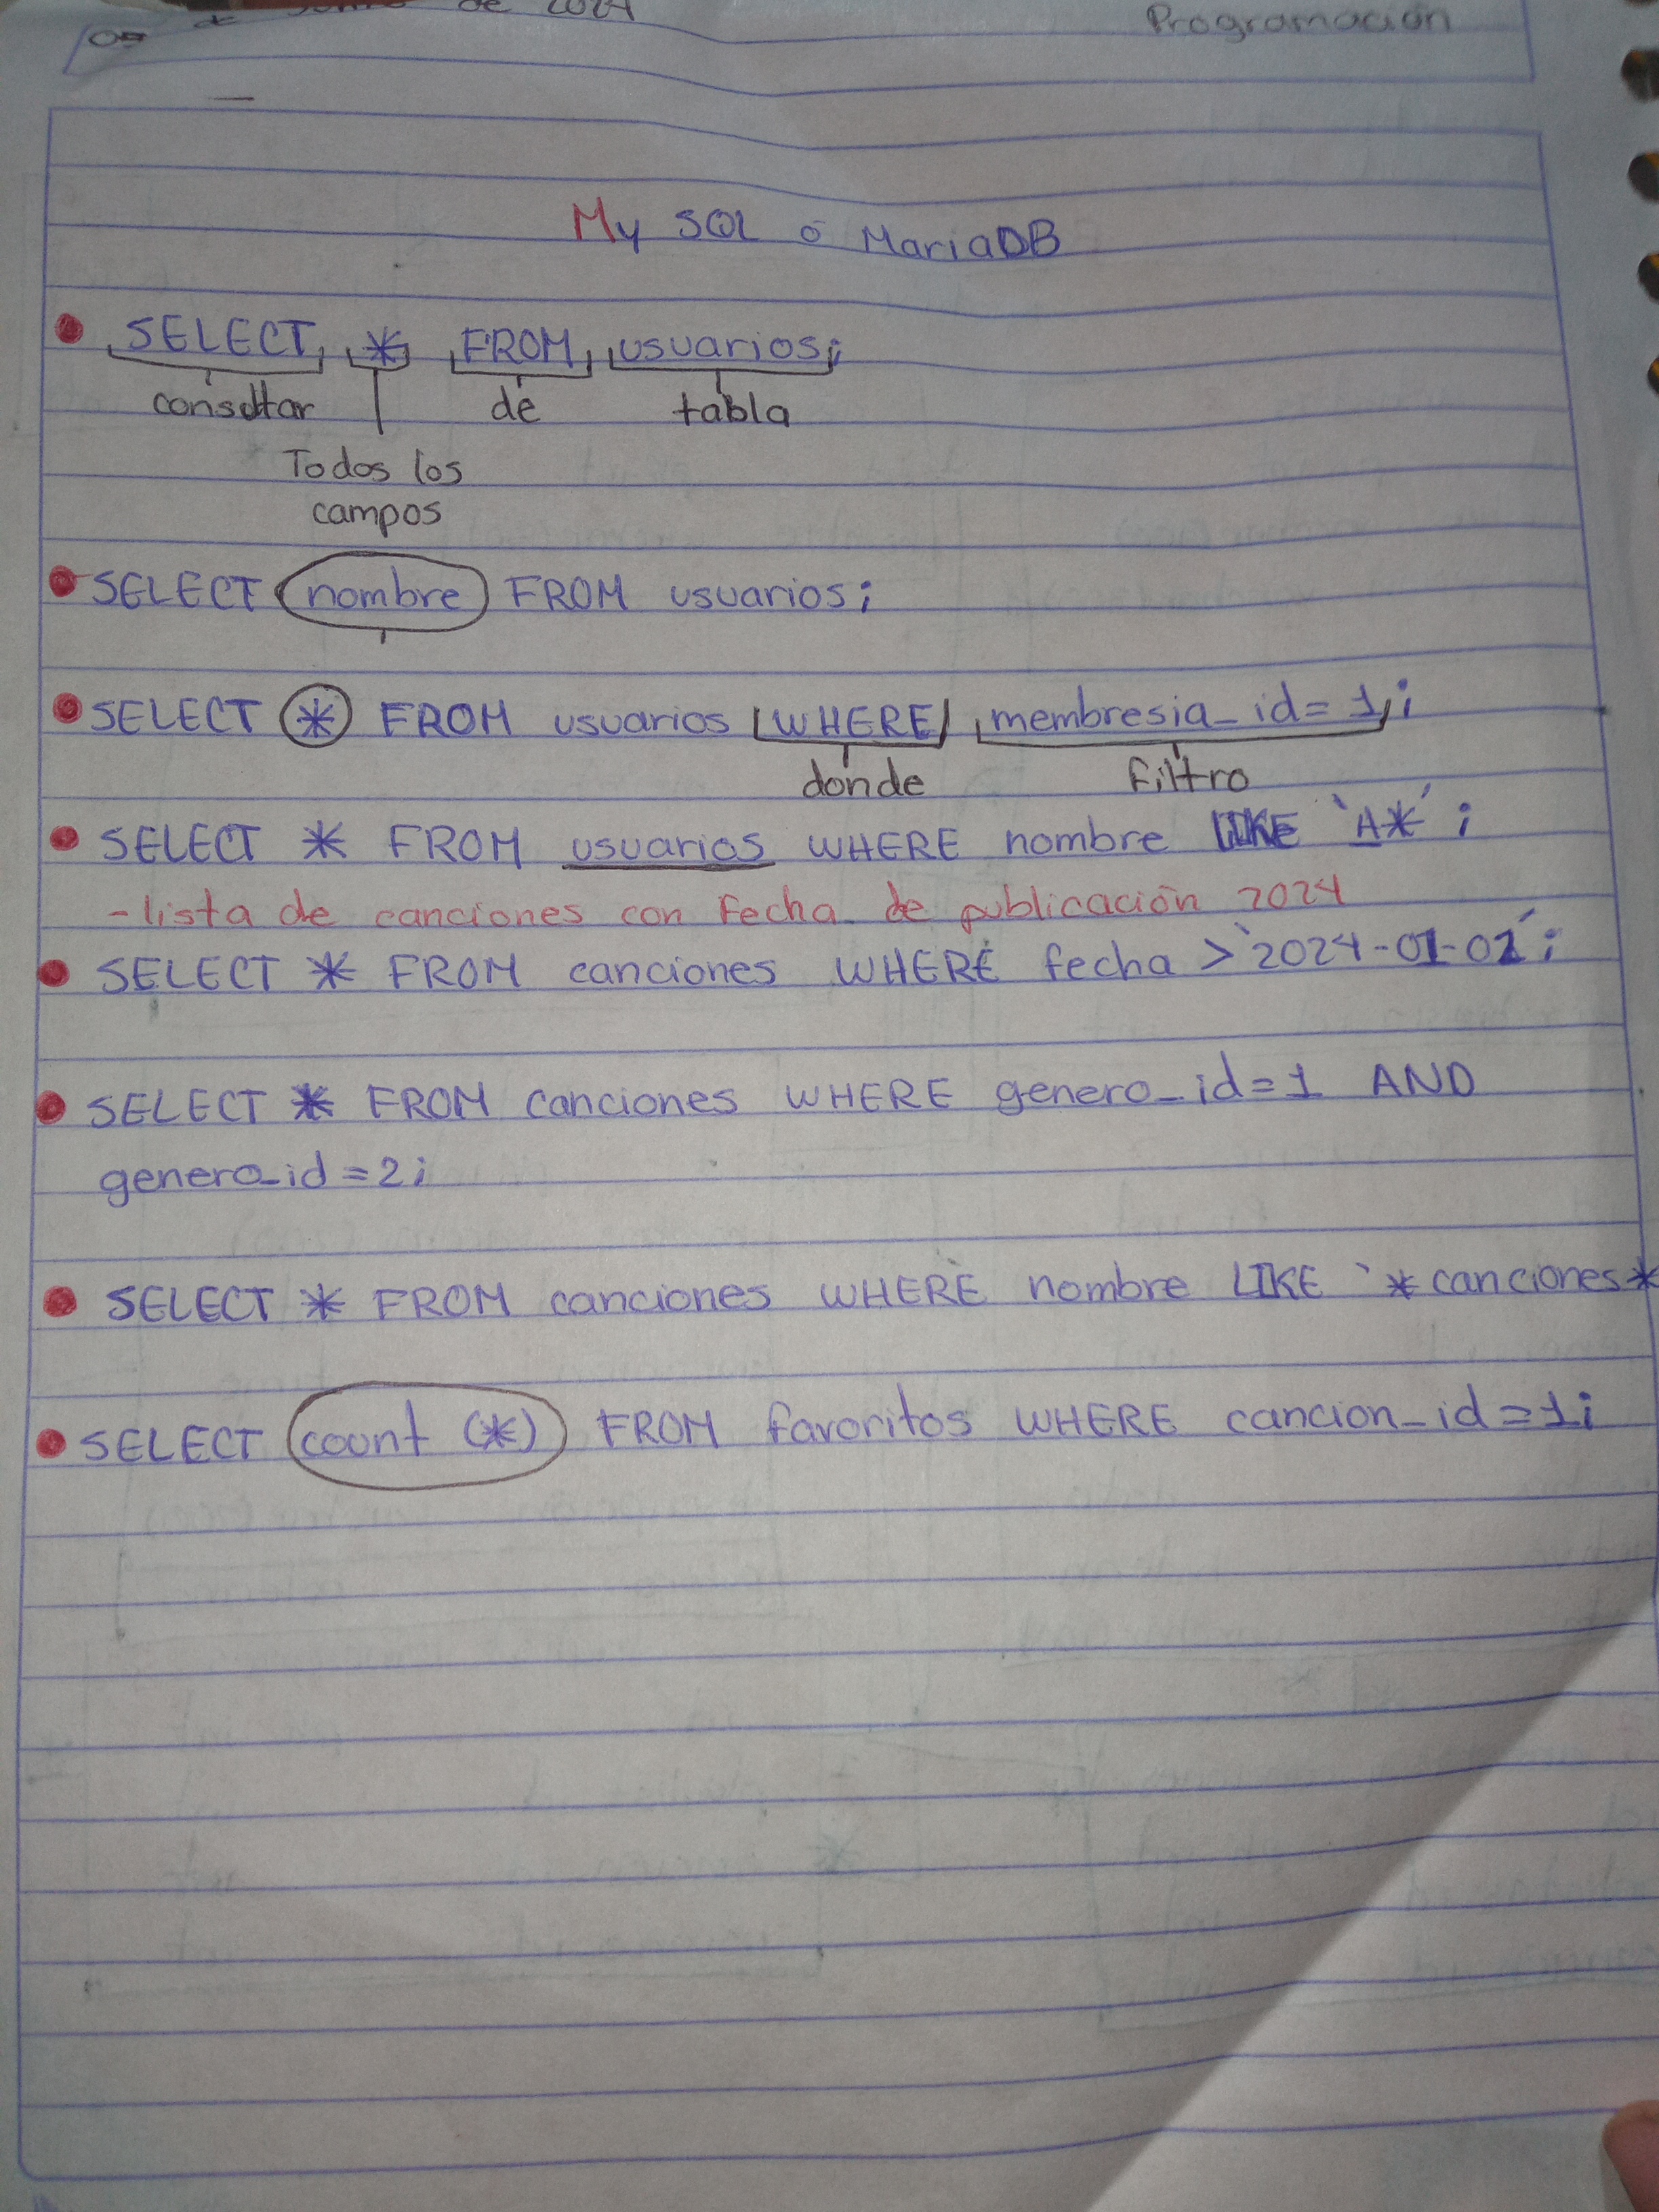 de 2024
Programación
My SQL ó MariaDB
SELECT * FROM usuarios;
consultar de tabla
Todos los
campos
SELECT nombre FROM usuarios;
SELECT * FROM usuarios WHERE membresia_id=1;
donde Filtro
SELECT * FROM usuarios WHERE nombre LIKE 'A*';
-lista de canciones con Fecha de publicación 2024
SELECT * FROM canciones WHERE fecha > '2024-01-01';
SELECT * FROM canciones WHERE genero_id=1 AND
genero_id=2;
SELECT * FROM canciones WHERE nombre LIKE '*canciones*
SELECT count (*) FROM favoritos WHERE cancion_id=1;